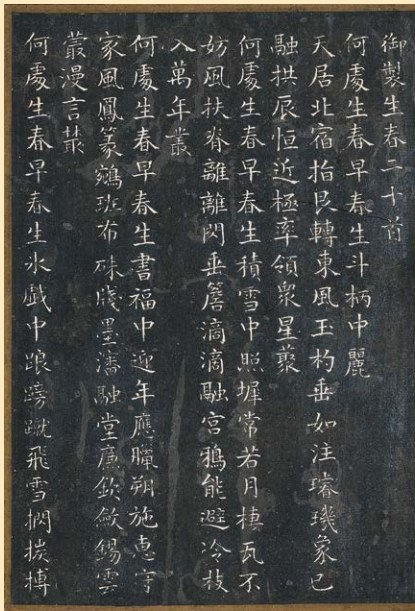 御製生春二十首
何處生春早春生斗柄中麗
天居北宿指艮轉東風玉杓垂如注璿璣象已
融拱辰恒近極率領衆星叢
何處生春早春生積雪中照墀常若月棲瓦不
妨風扶脊離離閃垂簷滴滴融宮鴉能避冷枝
入萬年叢
何處生春早春生書福中迎年應臘朔施惠守
家風鳳篆鵷班布硃牋墨瀋融堂廉欽斂錫雲
叢漫言叢
何處生春早春生水戲中踉蹡蹴飛雪捫搣摶